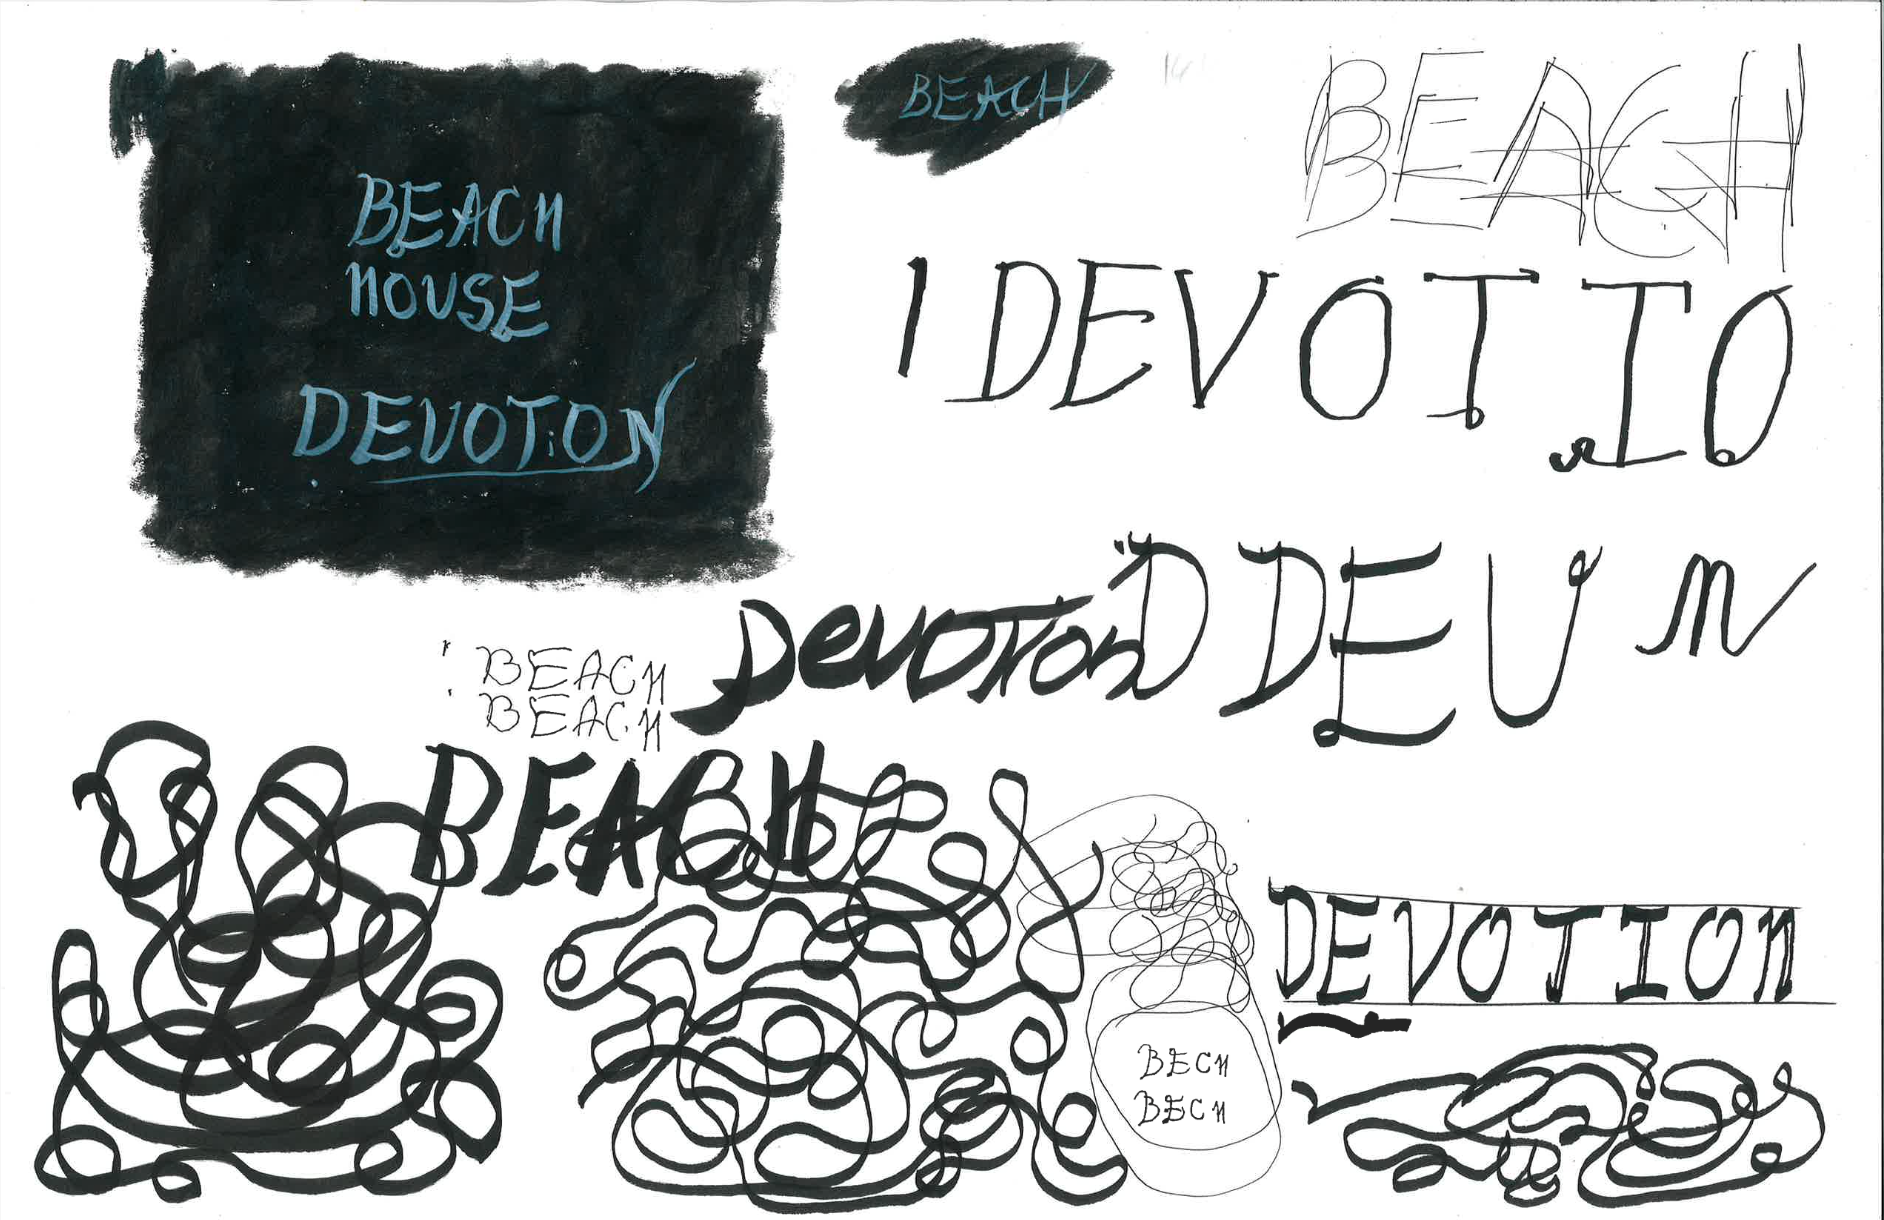 BEACH
HOUSE
DEVOTiON
BEACH
BEACH
I DEVOTIO
D DEU n
DevoTion
BEACH
BEACH
BEACH
DEVOTION
BECH
BECH